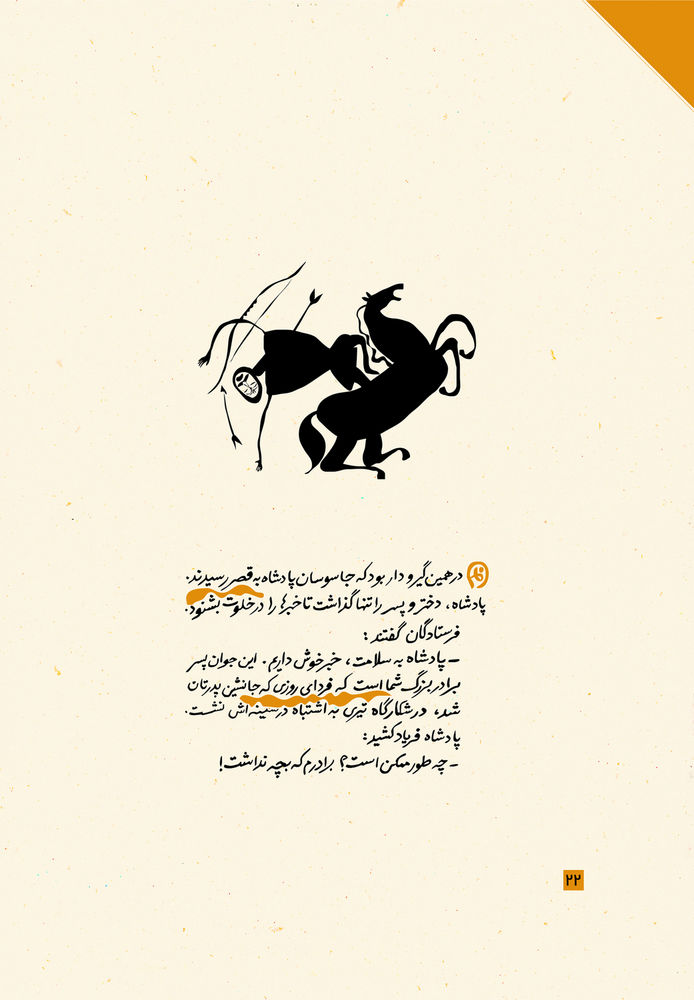 در همین گیر و دار بود که جاسوسان پادشاه به قصر رسیدند.
پادشاه، دختر و پسر را تنها گذاشت تا خبرها را در خلوت بشنود.
فرستادگان گفتند:
– پادشاه به سلامت، خبر خوش داریم. این جوان پسر
برادر بزرگ شما است که فردای روزی که جانشین پدرتان
شد، در شکارگاه تیری به اشتباه در سینه‌اش نشست.
پادشاه فریاد کشید:
– چه طور ممکن است؟ برادرم که بچه نداشت!
۲۲